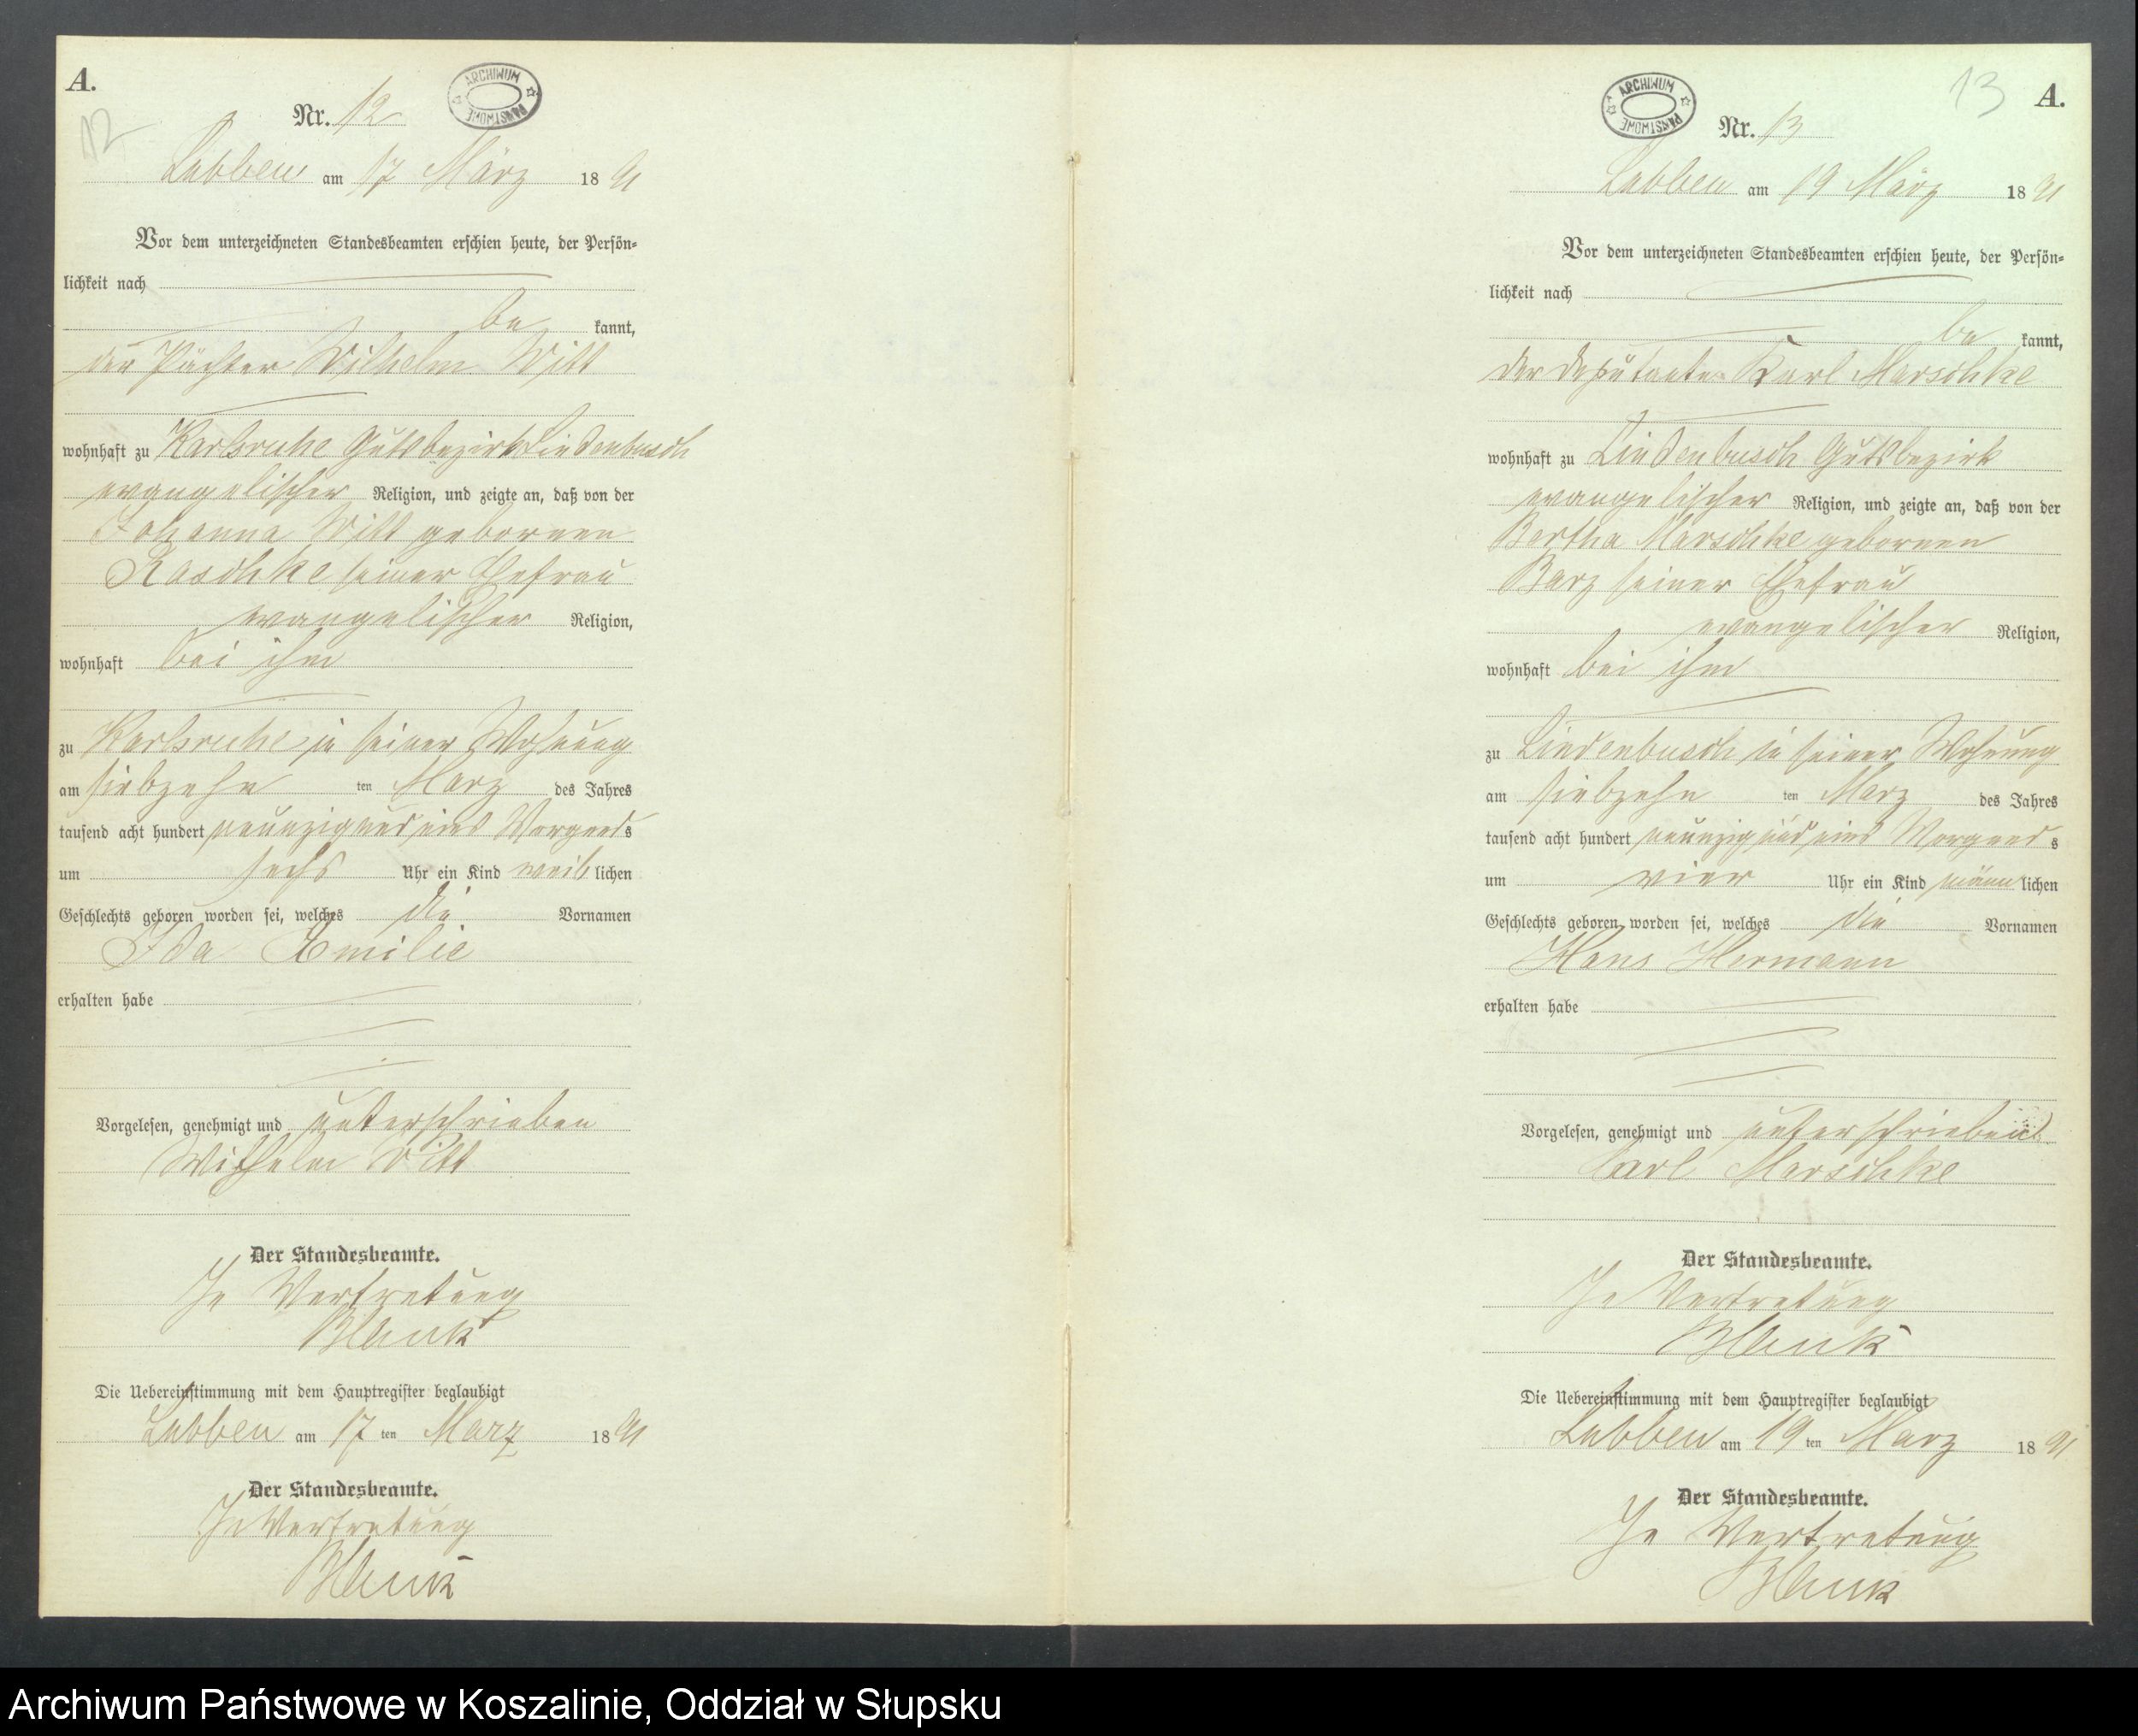 A.
12
Nr. 12
ARCHIWUM PAŃSTWOWE
Labben am 17 März 1891
Vor dem unterzeichneten Standesbeamten erschien heute, der Persön=
lichkeit nach
be kannt,
der Pächter Wilhelm Witt
wohnhaft zu Karlsruhe Gutsbezirk Lindenbusch
evangelischer Religion, und zeigte an, daß von der
Johanna Witt gebornen
Raschke seiner Ehefrau
evangelischer Religion,
wohnhaft bei ihm
zu Karlsruhe in seiner Wohnung
am siebzehn ten März des Jahres
tausend acht hundert neunzig und eins Morgens
um sechs Uhr ein Kind weiblichen
Geschlechts geboren worden sei, welches die Vornamen
Ida Emilie
erhalten habe
Vorgelesen, genehmigt und unterschrieben
Wilhelm Witt
Der Standesbeamte.
In Vertretung
Blank
Die Uebereinstimmung mit dem Hauptregister beglaubigt
Labben am 17 ten März 1891
Der Standesbeamte.
In Vertretung
Blank
13
A.
ARCHIWUM PAŃSTWOWE
Nr. 13
Labben am 19 März 1891
Vor dem unterzeichneten Standesbeamten erschien heute, der Persön=
lichkeit nach
be kannt,
der Deputante Karl Marschke
wohnhaft zu Lindenbusch Gutsbezirk
evangelischer Religion, und zeigte an, daß von der
Bertha Marschke gebornen
Barz seiner Ehefrau
evangelischer Religion,
wohnhaft bei ihm
zu Lindenbusch in seiner Wohnung
am siebzehn ten März des Jahres
tausend acht hundert neunzig und eins Morgens
um vier Uhr ein Kind männlichen
Geschlechts geboren worden sei, welches die Vornamen
Hans Hermann
erhalten habe
Vorgelesen, genehmigt und unterschrieben
Carl Marschke
Der Standesbeamte.
In Vertretung
Blank
Die Uebereinstimmung mit dem Hauptregister beglaubigt
Labben am 19 ten März 1891
Der Standesbeamte.
In Vertretung
Blank
Archiwum Państwowe w Koszalinie, Oddział w Słupsku